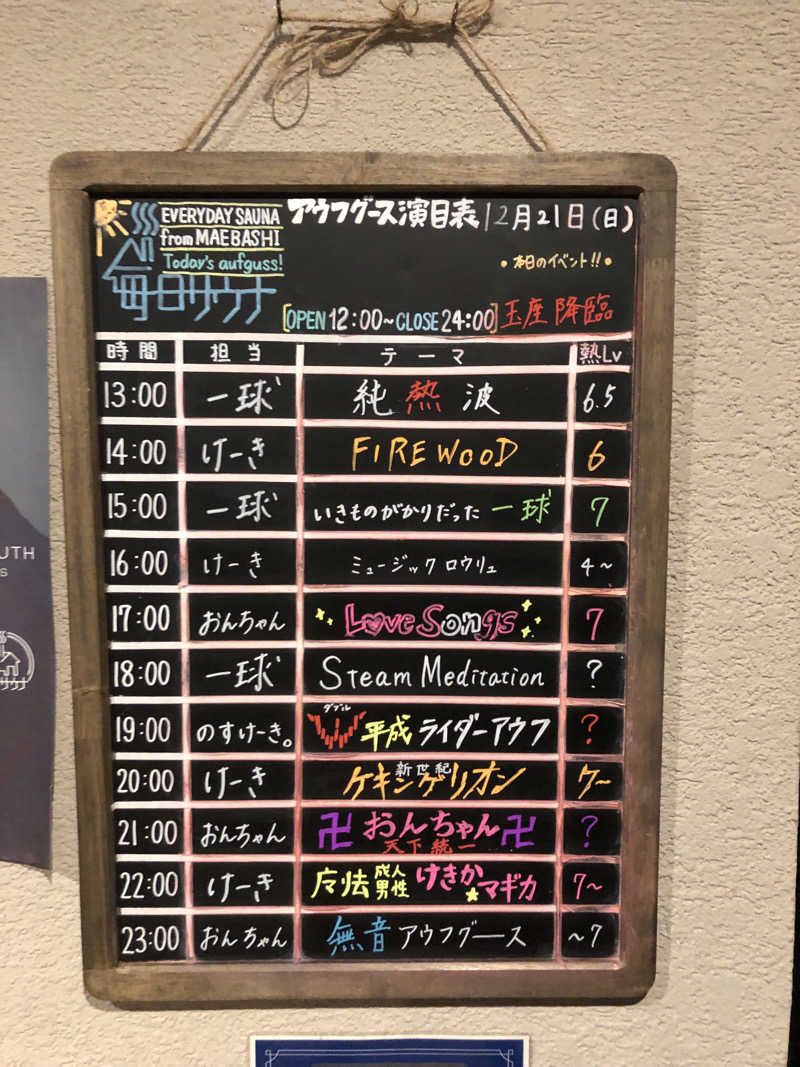 EVERYDAY SAUNA
from MAEBASHI
Today's aufguss!
毎日サウナ
アウフグース演目表 12月21日(日)
・本日のイベント!!・
[OPEN 12:00~CLOSE 24:00] 玉座降臨
時間 担当 テーマ 熱Lv
13:00 一球 純熱波 6.5
14:00 けーき FIREWOOD 6
15:00 一球 いきものがかりだった一球 7
16:00 けーき ミュージックロウリュ 4~
17:00 おんちゃん Love Songs 7
18:00 一球 Steam Meditation ?
19:00 のすけーき。 ダブル W 平成ライダーアウフ ?
20:00 けーき 新世紀ケキンゲリオン 7~
21:00 おんちゃん 卍おんちゃん卍 天下統一 ?
22:00 けーき 成人男性 けきか★マギカ 7~
23:00 おんちゃん 無音アウフグース ~7
UTH